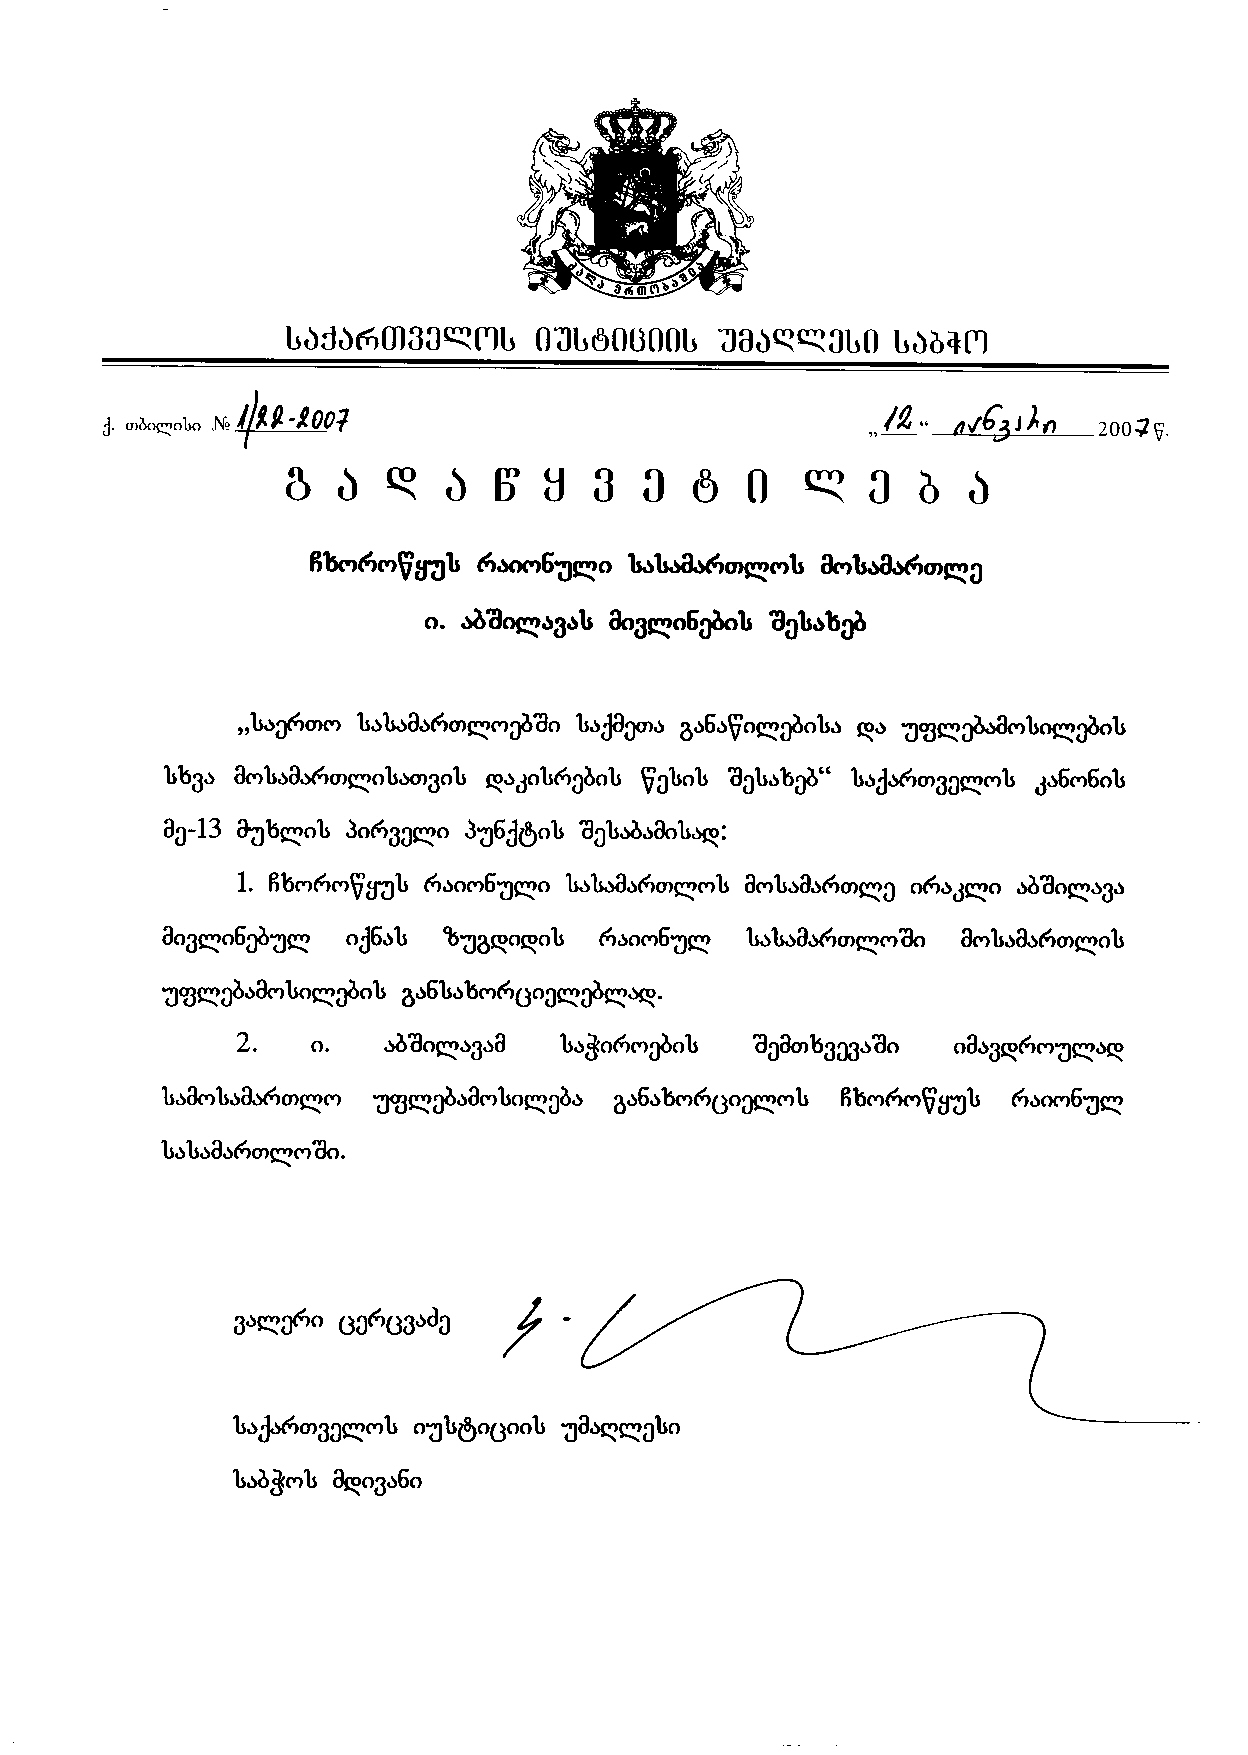 ძალა ერთობაშია
საქართველოს იუსტიციის უმაღლესი საბჭო
ქ. თბილისი № 1/22-2007 „12“ იანვარი 2007 წ.
გ ა დ ა წ ყ ვ ე ტ ი ლ ე ბ ა
ჩხოროწყუს რაიონული სასამართლოს მოსამართლე
ი. აბშილავას მივლინების შესახებ
„საერთო სასამართლოებში საქმეთა განაწილებისა და უფლებამოსილების
სხვა მოსამართლისათვის დაკისრების წესის შესახებ“ საქართველოს კანონის
მე-13 მუხლის პირველი პუნქტის შესაბამისად:
1. ჩხოროწყუს რაიონული სასამართლოს მოსამართლე ირაკლი აბშილავა
მივლინებულ იქნას ზუგდიდის რაიონულ სასამართლოში მოსამართლის
უფლებამოსილების განსახორციელებლად.
2. ი. აბშილავამ საჭიროების შემთხვევაში იმავდროულად
სამოსამართლო უფლებამოსილება განახორციელოს ჩხოროწყუს რაიონულ
სასამართლოში.
ვალერი ცერცვაძე
საქართველოს იუსტიციის უმაღლესი
საბჭოს მდივანი